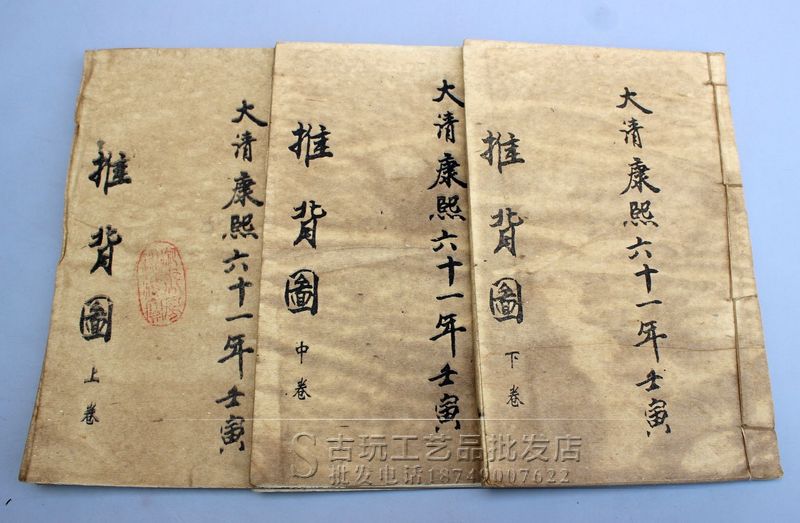 大清康熙六十一年壬寅
推背圖
上卷
大清康熙六十一年壬寅
推背圖
中卷
大清康熙六十一年壬寅
推背圖
下卷
S古玩工艺品批发店
批发电话18749007622